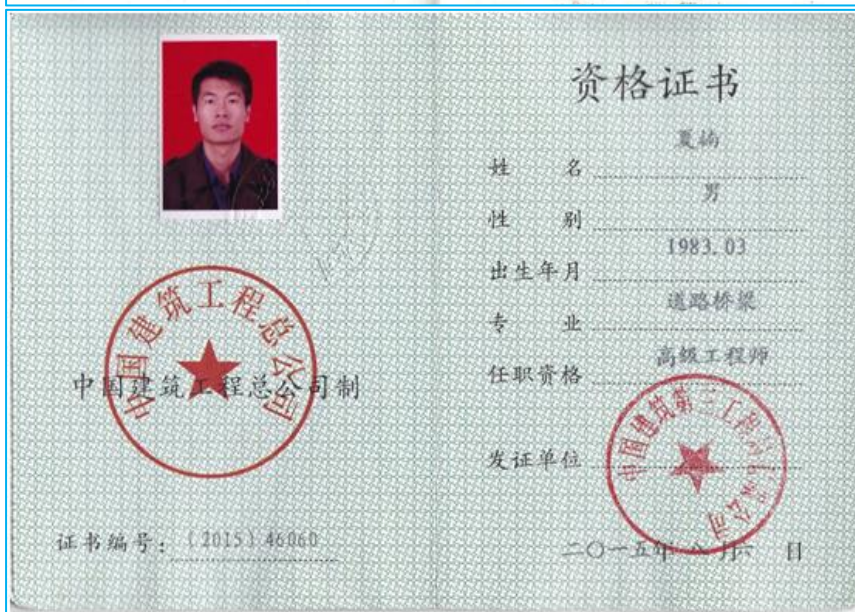 中国建筑工程总公司
中国建筑工程总公司制
证书编号：(2015)46060
资格证书
姓 名 夏楠
性 别 男
出生年月 1983.03
专 业 道路桥梁
任职资格 高级工程师
发证单位
中国建筑第三工程局有限公司
二〇一五年 八 月六 日